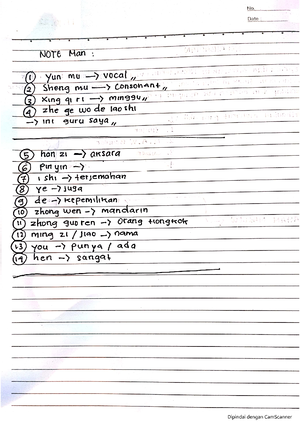 No.
Date
NOTE Man :
① Yun mu → vocal „
② Sheng mu → consonant „
③ Xing qi ri → minggu „
④ zhe ge wo de lao shi
→ ini guru saya „
⑤ han zi → aksara
⑥ Pin yin →
⑦ i shi → terjemahan
⑧ ye → juga
⑨ de → kepemilikan
⑩ zhong wen → mandarin
⑪ zhong guo ren → orang tiongkok
⑫ ming zi / jiao → nama
⑬ you → punya / ada
⑭ hen → sangat
Dipindai dengan CamScanner